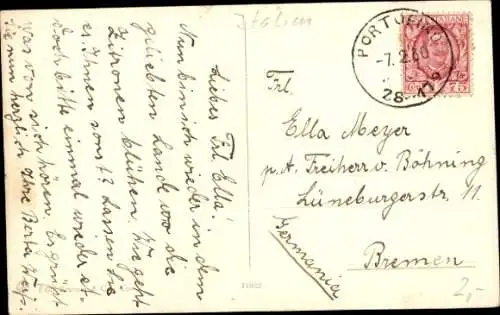 Italien
PORTOFINO
-7.2.
28-
ITALIANE
75
Liebes Frl. Ella!
Nun bin ich wieder in dem
geliebten Lande wo die
Zitronen blühen. Wie geht
es Ihnen sonst? Lassen Sie
doch bitte einmal wieder et-
was von sich hören. Es grüßt
Sie nun herzlich Ihre Berta
Frl.
Ella Meyer
p. A. Freiherr v. Böhning
Lüneburgerstr. 11
Bremen
Germania
2,-